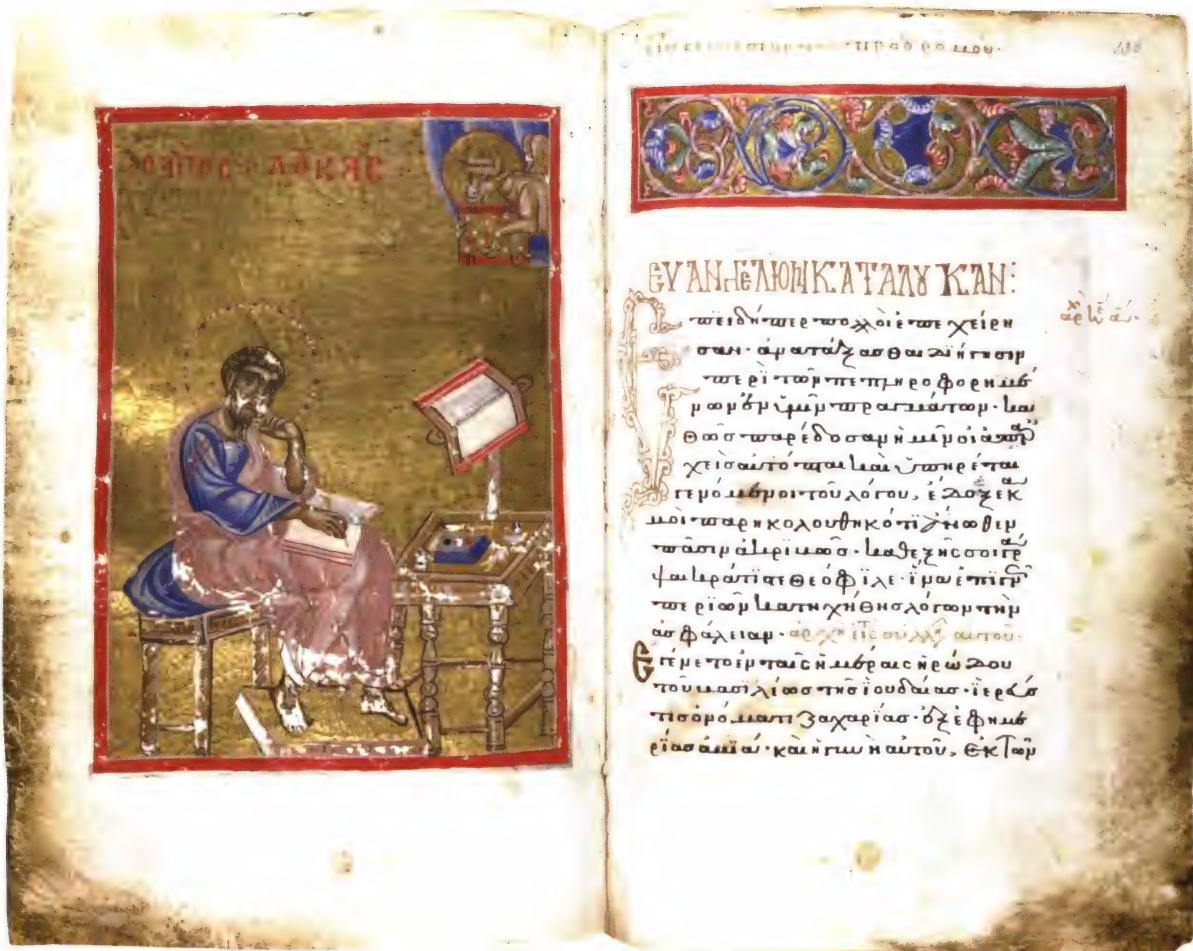 ΛΟΥΚΑϹ
138
ΕΥΑΓΓΕΛΙΟΝ ΚΑΤΑ ΛΟΥΚΑΝ:
Ἐπειδήπερ πολλοὶ ἐπεχείρη
σαν· ἀνατάξασθαι διήγησιν
περὶ τῶν πεπληροφορημέ
νων ἐν ἡμῖν πραγμάτων· κα
θὼς παρέδοσαν ἡμῖν οἱ ἀπαρ
χῆς αὐτόπται καὶ ὑπηρέται
γενόμενοι τοῦ λόγου, ἔδοξε κα
μοὶ παρηκολουθηκότι ἄνωθεν
πᾶσιν ἀκριβῶς· καθεξῆς σοι γρά
ψαι κράτιστε Θεόφιλε· ἵνα ἐπιγνῷς
περὶ ὧν κατηχήθης λόγων τὴν
ἀσφάλειαν·
Ἐγένετο ἐν ταῖς ἡμέραις ἡρώδου
τοῦ βασιλέως τῆς ἰουδαίας· ἱερεύς
τις ὀνόματι ζαχαρίας· ἐξ ἐφημε
ρίας ἀβιά· καὶ ἡ γυνὴ αὐτοῦ, ἐκ τῶν